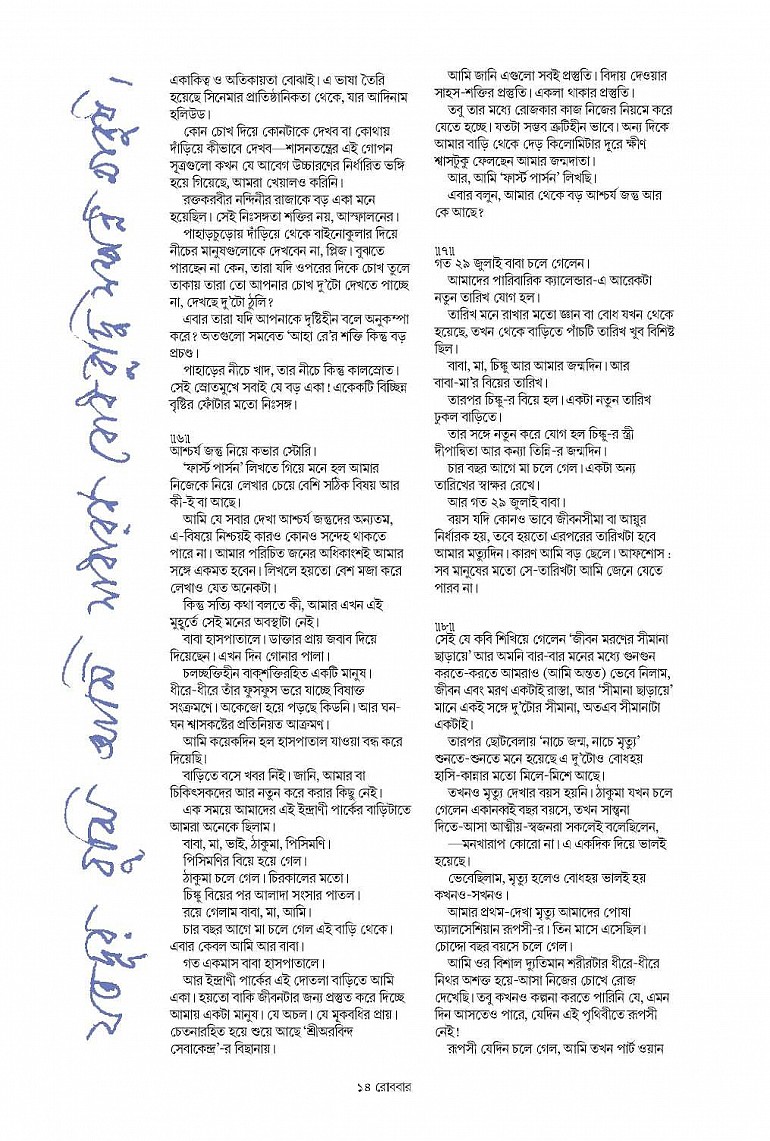 যতদূর বুঝি আমি সাধারণ বোধবুদ্ধি সম্পন্ন মানুষ।
একাকিত্ব ও অতিকায়তা বোঝাই। এ ভাষা তৈরি
হয়েছে সিনেমার প্রাতিষ্ঠানিকতা থেকে, যার আদিনাম
হলিউড।
কোন চোখ দিয়ে কোনটাকে দেখব বা কোথায়
দাঁড়িয়ে কীভাবে দেখব—শাসনতন্ত্রের এই গোপন
সূত্রগুলো কখন যে আবেগ উচ্চারণের নির্ধারিত ভঙ্গি
হয়ে গিয়েছে, আমরা খেয়ালও করিনি।
রক্তকরবীর নন্দিনীর রাজাকে বড় একা মনে
হয়েছিল। সেই নিঃসঙ্গতা শক্তির নয়, আস্ফালনের।
পাহাড়চুড়োয় দাঁড়িয়ে থেকে বাইনোকুলার দিয়ে
নীচের মানুষগুলোকে দেখবেন না, প্লিজ। বুঝতে
পারছেন না কেন, তারা যদি ওপরের দিকে চোখ তুলে
তাকায় তারা তো আপনার চোখ দু’টো দেখতে পাচ্ছে
না, দেখছে দু’টো ঠুলি?
এবার তারা যদি আপনাকে দৃষ্টিহীন বলে অনুকম্পা
করে? অতগুলো সমবেত ‘আহা রে’র শক্তি কিন্তু বড়
প্রচণ্ড।
পাহাড়ের নীচে খাদ, তার নীচে কিন্তু কালস্রোত।
সেই স্রোতমুখে সবাই যে বড় একা! একেকটি বিচ্ছিন্ন
বৃষ্টির ফোঁটার মতো নিঃসঙ্গ।
॥৬॥
আশ্চর্য জন্তু নিয়ে কভার স্টোরি।
‘ফার্স্ট পার্সন’ লিখতে গিয়ে মনে হল আমার
নিজেকে নিয়ে লেখার চেয়ে বেশি সঠিক বিষয় আর
কী-ই বা আছে।
আমি যে সবার দেখা আশ্চর্য জন্তুদের অন্যতম,
এ-বিষয়ে নিশ্চয়ই কারও কোনও সন্দেহ থাকতে
পারে না। আমার পরিচিত জনের অধিকাংশই আমার
সঙ্গে একমত হবেন। লিখলে হয়তো বেশ মজা করে
লেখাও যেত অনেকটা।
কিন্তু সত্যি কথা বলতে কী, আমার এখন এই
মুহূর্তে সেই মনের অবস্থাটা নেই।
বাবা হাসপাতালে। ডাক্তার প্রায় জবাব দিয়ে
দিয়েছেন। এখন দিন গোনার পালা।
চলচ্ছক্তিহীন বাক্‌শক্তিরহিত একটি মানুষ।
ধীরে-ধীরে তাঁর ফুসফুস ভরে যাচ্ছে বিষাক্ত
সংক্রমণে। অকেজো হয়ে পড়ছে কিডনি। আর ঘন-
ঘন শ্বাসকষ্টের প্রতিনিয়ত আক্রমণ।
আমি কয়েকদিন হল হাসপাতাল যাওয়া বন্ধ করে
দিয়েছি।
বাড়িতে বসে খবর নিই। জানি, আমার বা
চিকিৎসকদের আর নতুন করে করার কিছু নেই।
এক সময়ে আমাদের এই ইন্দ্রাণী পার্কের বাড়িটাতে
আমরা অনেকে ছিলাম।
বাবা, মা, ভাই, ঠাকুমা, পিসিমণি।
পিসিমণির বিয়ে হয়ে গেল।
ঠাকুমা চলে গেল। চিরকালের মতো।
চিঙ্কু বিয়ের পর আলাদা সংসার পাতল।
রয়ে গেলাম বাবা, মা, আমি।
চার বছর আগে মা চলে গেল এই বাড়ি থেকে।
এবার কেবল আমি আর বাবা।
গত একমাস বাবা হাসপাতালে।
আর ইন্দ্রাণী পার্কের এই দোতলা বাড়িতে আমি
একা। হয়তো বাকি জীবনটার জন্য প্রস্তুত করে দিচ্ছে
আমায় একটা মানুষ। যে অচল। যে মূকবধির প্রায়।
চেতনারহিত হয়ে শুয়ে আছে ‘শ্রীঅরবিন্দ
সেবাকেন্দ্র’-র বিছানায়।
আমি জানি এগুলো সবই প্রস্তুতি। বিদায় দেওয়ার
সাহস-শক্তির প্রস্তুতি। একলা থাকার প্রস্তুতি।
তবু তার মধ্যে রোজকার কাজ নিজের নিয়মে করে
যেতে হচ্ছে। যতটা সম্ভব ত্রুটিহীন ভাবে। অন্য দিকে
আমার বাড়ি থেকে দেড় কিলোমিটার দূরে ক্ষীণ
শ্বাসটুকু ফেলছেন আমার জন্মদাতা।
আর, আমি ‘ফার্স্ট পার্সন’ লিখছি।
এবার বলুন, আমার থেকে বড় আশ্চর্য জন্তু আর
কে আছে?
॥৭॥
গত ২৯ জুলাই বাবা চলে গেলেন।
আমাদের পারিবারিক ক্যালেন্ডার-এ আরেকটা
নতুন তারিখ যোগ হল।
তারিখ মনে রাখার মতো জ্ঞান বা বোধ যখন থেকে
হয়েছে, তখন থেকে বাড়িতে পাঁচটি তারিখ খুব বিশিষ্ট
ছিল।
বাবা, মা, চিঙ্কু আর আমার জন্মদিন। আর
বাবা-মা’র বিয়ের তারিখ।
তারপর চিঙ্কু-র বিয়ে হল। একটা নতুন তারিখ
ঢুকল বাড়িতে।
তার সঙ্গে নতুন করে যোগ হল চিঙ্কু-র স্ত্রী
দীপান্বিতা আর কন্যা তিন্নি-র জন্মদিন।
চার বছর আগে মা চলে গেল। একটা অন্য
তারিখের স্বাক্ষর রেখে।
আর গত ২৯ জুলাই বাবা।
বয়স যদি কোনও ভাবে জীবনসীমা বা আয়ুর
নির্ধারক হয়, তবে হয়তো এরপরের তারিখটা হবে
আমার মৃত্যুদিন। কারণ আমি বড় ছেলে। আফশোস :
সব মানুষের মতো সে-তারিখটা আমি জেনে যেতে
পারব না।
॥৮॥
সেই যে কবি শিখিয়ে গেলেন ‘জীবন মরণের সীমানা
ছাড়ায়ে’ আর অমনি বার-বার মনের মধ্যে গুনগুন
করতে-করতে আমরাও (আমি অন্তত) ভেবে নিলাম,
জীবন এবং মরণ একটাই রাস্তা, আর ‘সীমানা ছাড়ায়ে’
মানে একই সঙ্গে দু’টোর সীমানা, অতএব সীমানাটা
একটাই।
তারপর ছোটবেলায় ‘নাচে জন্ম, নাচে মৃত্যু’
শুনতে-শুনতে মনে হয়েছে এ দু’টোও বোধহয়
হাসি-কান্নার মতো মিলে-মিশে আছে।
তখনও মৃত্যু দেখার বয়স হয়নি। ঠাকুমা যখন চলে
গেলেন একানব্বই বছর বয়সে, তখন সান্ত্বনা
দিতে-আসা আত্মীয়-স্বজনরা সকলেই বলেছিলেন,
—মনখারাপ কোরো না। এ একদিক দিয়ে ভালই
হয়েছে।
ভেবেছিলাম, মৃত্যু হলেও বোধহয় ভালই হয়
কখনও-সখনও।
আমার প্রথম-দেখা মৃত্যু আমাদের পোষা
অ্যালসেশিয়ান রূপসী-র। তিন মাসে এসেছিল।
চোদ্দো বছর বয়সে চলে গেল।
আমি ওর বিশাল দ্যুতিমান শরীরটার ধীরে-ধীরে
নিথর অশক্ত হয়ে-আসা নিজের চোখে রোজ
দেখেছি। তবু কখনও কল্পনা করতে পারিনি যে, এমন
দিন আসতেও পারে, যেদিন এই পৃথিবীতে রূপসী
নেই!
রূপসী যেদিন চলে গেল, আমি তখন পার্ট ওয়ান
১৪ রোববার